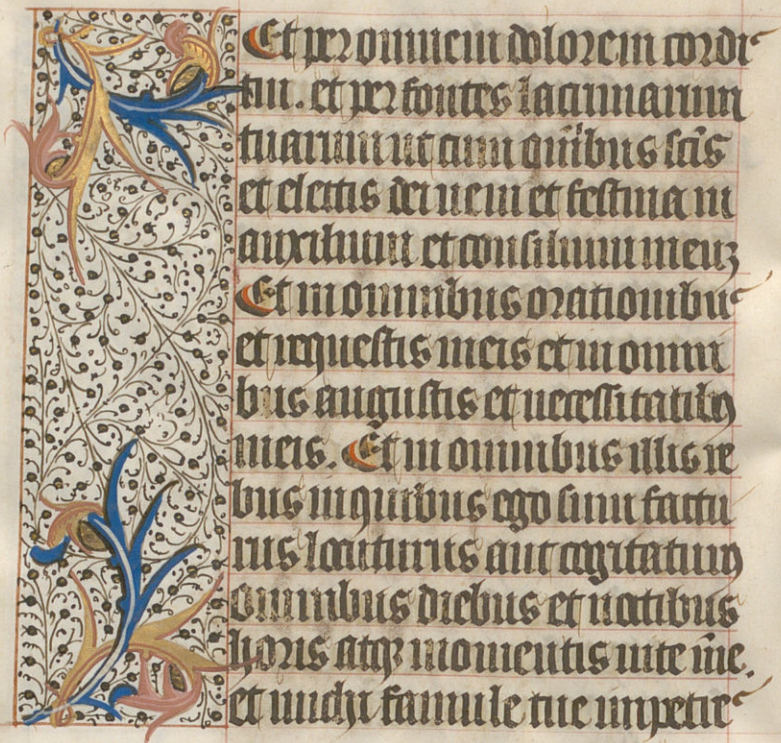 Et per omnem dolorem cordis
tui. et per fontes lacrimarum
tuarum ut cum om̅ibus sc̅is
et electis dei veni et festina in
auxilium et consilium meuz
Et in omnibus orationibus
et requestis meis et in omni
bus angustis et necessitatibꝰ
meis. Et in omnibus illis re
bus in quibus ego sum factu
rus locuturus aut cogitaturꝰ
omnibus diebus et noctibus
horis atqꝫ momentis vite me̅e.
et michi famule tue impetre